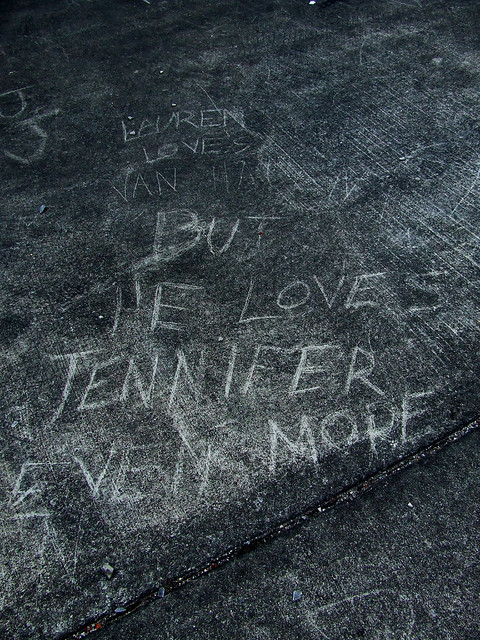 J
J
LAUREN
LOVES
VAN
BUT
HE LOVES
JENNIFER
EVEN MORE